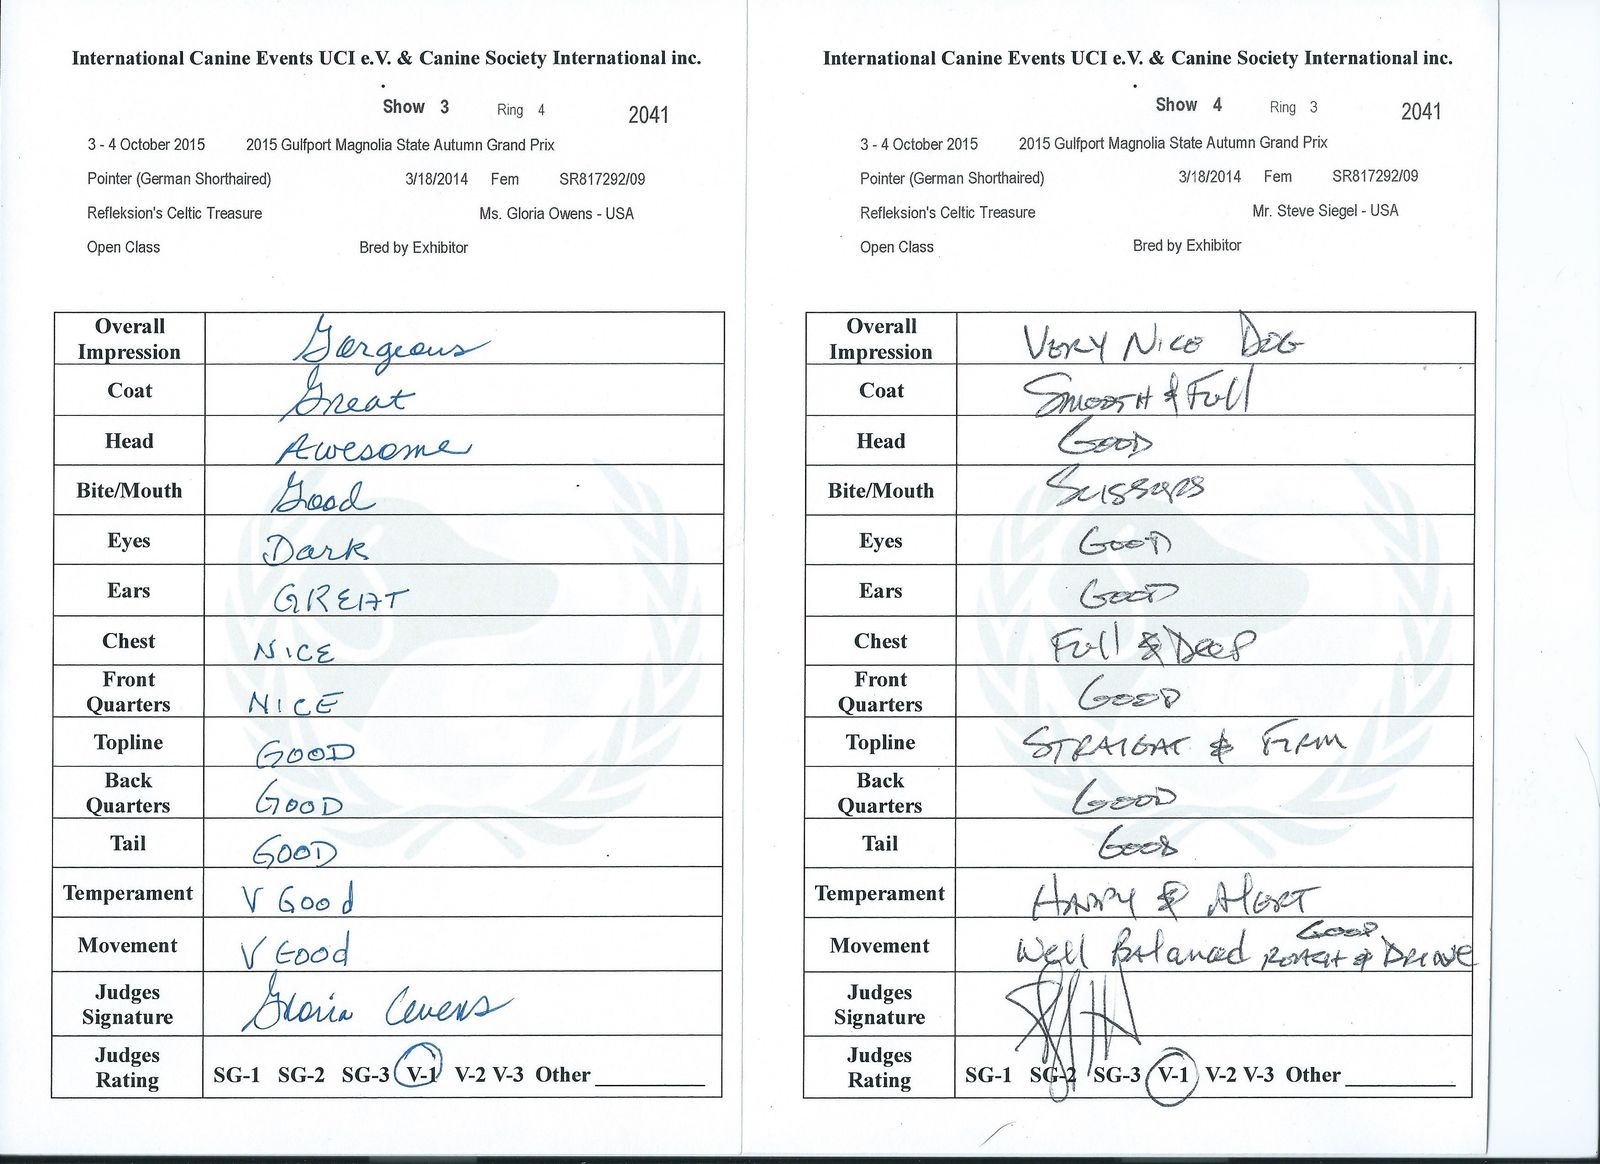 International Canine Events UCI e.V. & Canine Society International inc.
Show 3 Ring 4 2041
3 - 4 October 2015 2015 Gulfport Magnolia State Autumn Grand Prix
Pointer (German Shorthaired) 3/18/2014 Fem SR817292/09
Refleksion's Celtic Treasure Ms. Gloria Owens - USA
Open Class Bred by Exhibitor
Overall Impression Gorgeous
Coat Great
Head Awesome
Bite/Mouth Good
Eyes Dark
Ears GREAT
Chest NICE
Front Quarters NICE
Topline GOOD
Back Quarters GOOD
Tail GOOD
Temperament V Good
Movement V Good
Judges Signature Gloria Owens
Judges Rating SG-1 SG-2 SG-3 V-1 V-2 V-3 Other
International Canine Events UCI e.V. & Canine Society International inc.
Show 4 Ring 3 2041
3 - 4 October 2015 2015 Gulfport Magnolia State Autumn Grand Prix
Pointer (German Shorthaired) 3/18/2014 Fem SR817292/09
Refleksion's Celtic Treasure Mr. Steve Siegel - USA
Open Class Bred by Exhibitor
Overall Impression VERY NICE DOG
Coat SMOOTH & Full
Head GOOD
Bite/Mouth SCISSORS
Eyes GOOD
Ears GOOD
Chest Full & DEEP
Front Quarters GOOD
Topline STRAIGHT & FIRM
Back Quarters GOOD
Tail GOOD
Temperament HAPPY & Alert
Movement Well Balanced GOOD REACH & DRIVE
Judges Signature
Judges Rating SG-1 SG-2 SG-3 V-1 V-2 V-3 Other